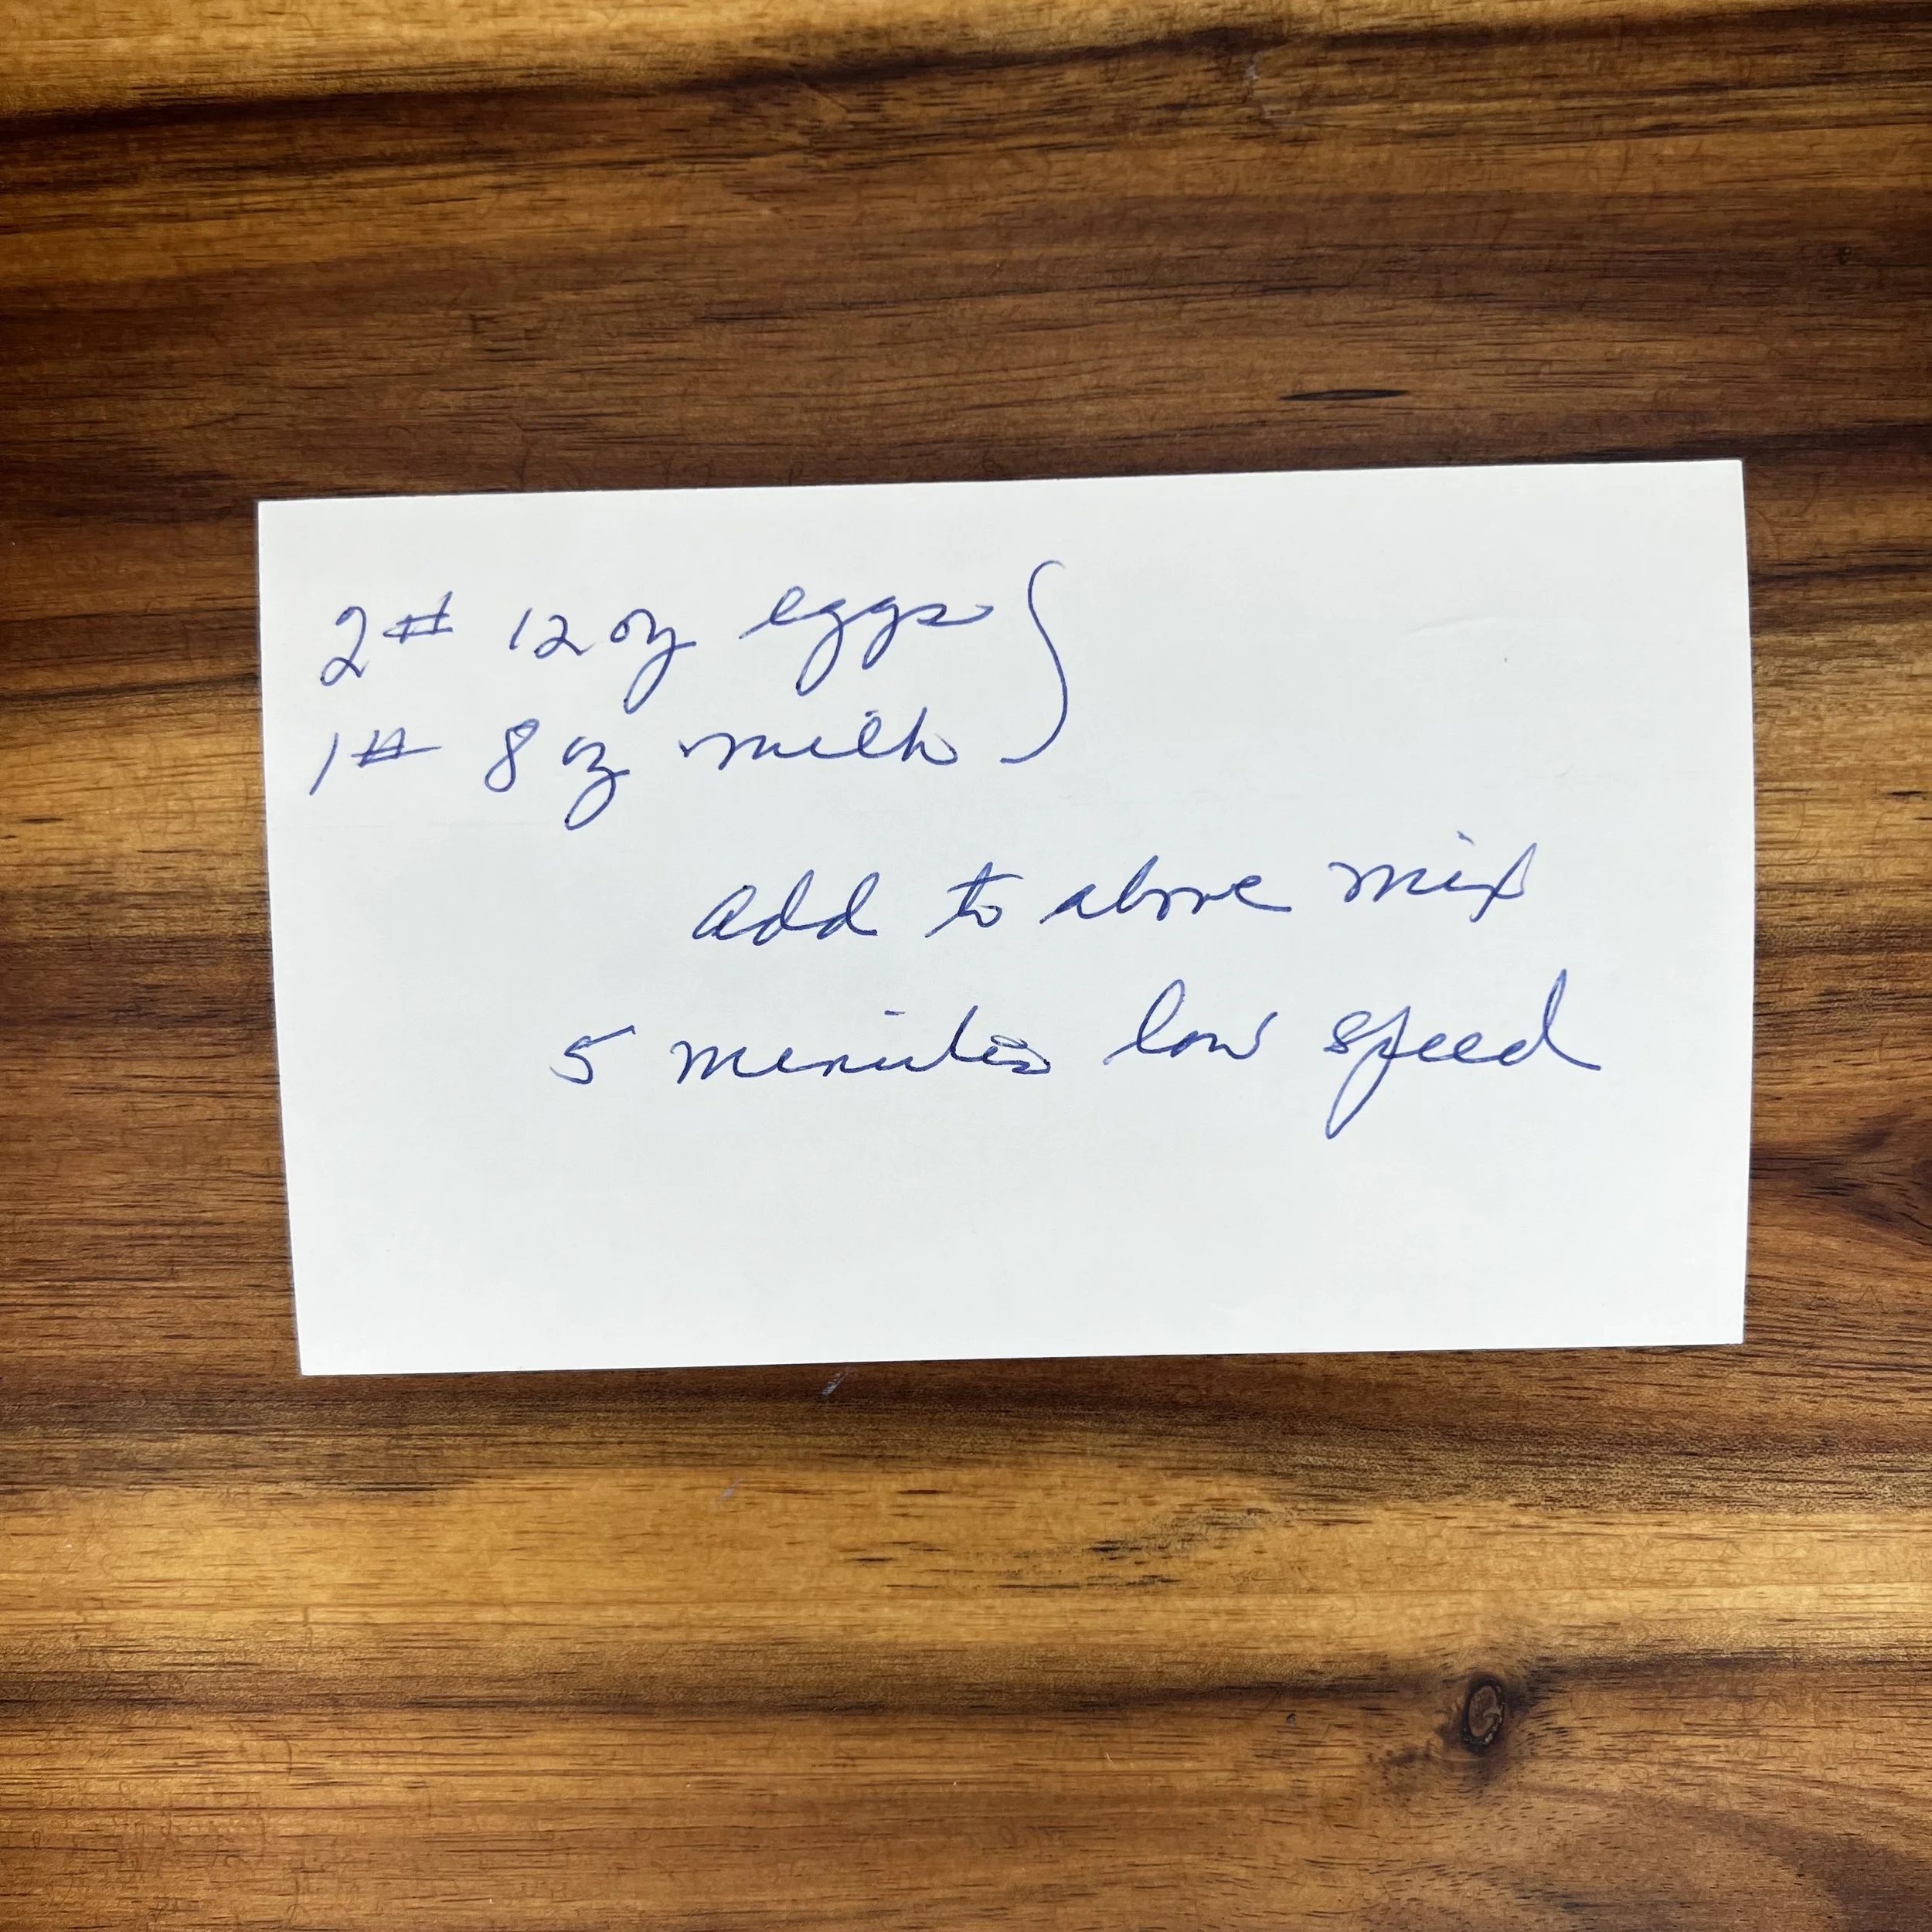 2# 12 oz eggs }
1# 8 oz milk
add to above mix
5 minutes low speed